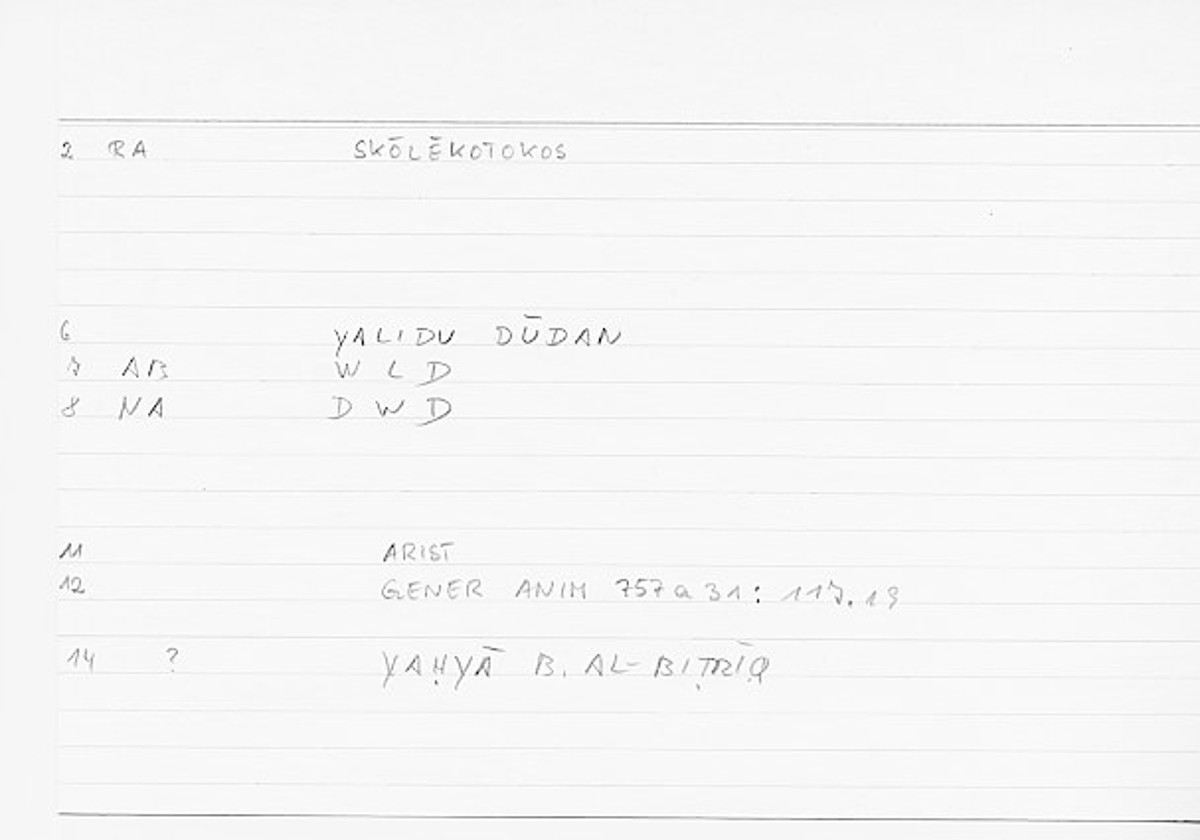 2 RA SKŌLĒKOTOKOS
6 YALIDU DŪDAN
7 AB W L D
8 NA D W D
11 ARIST
12 GENER ANIM 757a31: 117.19
14 ? YAḤYĀ B. AL-BIṬRĪQ